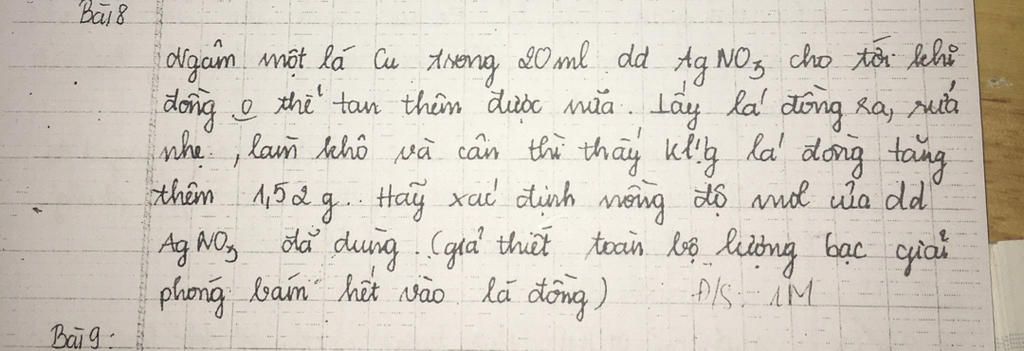 Bài 8
Ngâm một lá Cu trong 20ml dd AgNO3 cho tới khi
đồng o thể tan thêm được nữa. Lấy lá đồng ra, rửa
nhẹ, làm khô và cân thì thấy klg lá đồng tăng
thêm 1,52 g.. Hãy xác định nồng độ mol của dd
AgNO3 đã dùng. (giả thiết toàn bộ lượng bạc giải
phóng bám hết vào lá đồng) Đ/S: 1M
Bài 9: